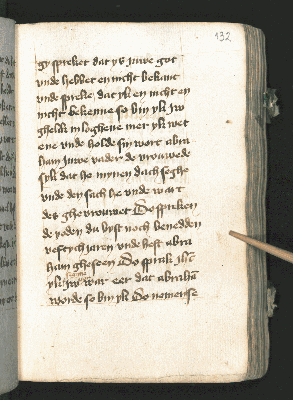 132
gy spreket dat ys iuwe got
vnde hebbet en nicht bekant
vnde spreke dat yk en nicht en
nicht bekenne so byn yk iw
ghelik in loghene mer yk wet
ene vnde holde syn wort abra
ham iuwe vader de vrouwede
syk dat he mynen dach seghe
vnde den sach he vnde wart
des ghevrouwet Do spreken
de yoden du byst noch beneden
veftych iaren vnde hest abra
ham gheseen Do sprak ihc
yk iw war eer dat abraham
worde so bin yk Do nemen se